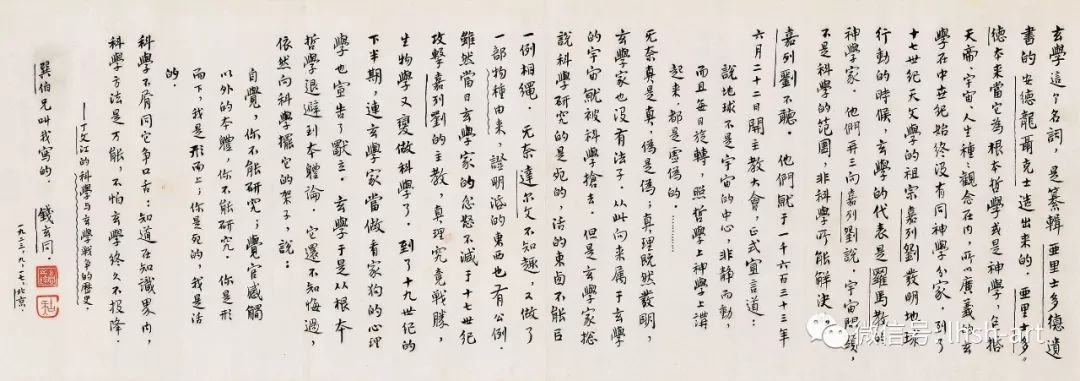 玄學這个名詞，是纂輯亞里士多德遺
書的安德龍聶克士造出來的．亞里士多
德本來當它為根本哲學或是神學，包括
天帝．宇宙．人生種種觀念在內，所以廣義的玄
學在中世紀始終沒有同神學分家．到了
十七世紀天文學的祖宗嘉列劉發明地球
行動的時候，玄學的代表是羅馬教的
神學家．他們再三向嘉列劉說，宇宙問題，
不是科學的范圍，非科學所能解決．
嘉列劉不聽．他們就于一千六百三十三年
六月二十二日開主教大會，正式宣言道：
說地球不是宇宙的中心，非靜而動，
而且每日旋轉，照哲學上神學上講
起來，都是虛偽的……
无奈真是真，偽是偽；真理既然發明，
玄學家也沒有法子．从此向來屬于玄學
的宇宙就被科學搶去．但是玄學家總
說科學研究的是死的，活的東西不能臣
一例相繩．无奈達尔文不知趣，又做了
一部物種由來，證明活的東西也有公例．
雖然當日玄學家的忿怒不減于十七世紀
攻擊嘉列劉的主教，真理究竟戰勝，
生物學又變做科學了．到了十九世紀的
下半期，連玄學家當做看家狗的心理
學也宣告了獨立．玄學于是从根本
哲學退避到本體論．它還不知悔過，
依然向科學擺它的架子，說：
自覺，你不能研究；覺官感觸
以外的本體，你不能研究．你是形
而下，我是形而上；你是死的，我是活
的．
科學不屑同它爭口舌：知道在知識界內，
科學方法是万能，不怕玄學終久不投降．
——丁文江的科學与玄學戰爭的歷史．
巽伯兄叫我寫的．
錢玄同．
一九三三，九，一七，北京．
微信号：lhsh-art